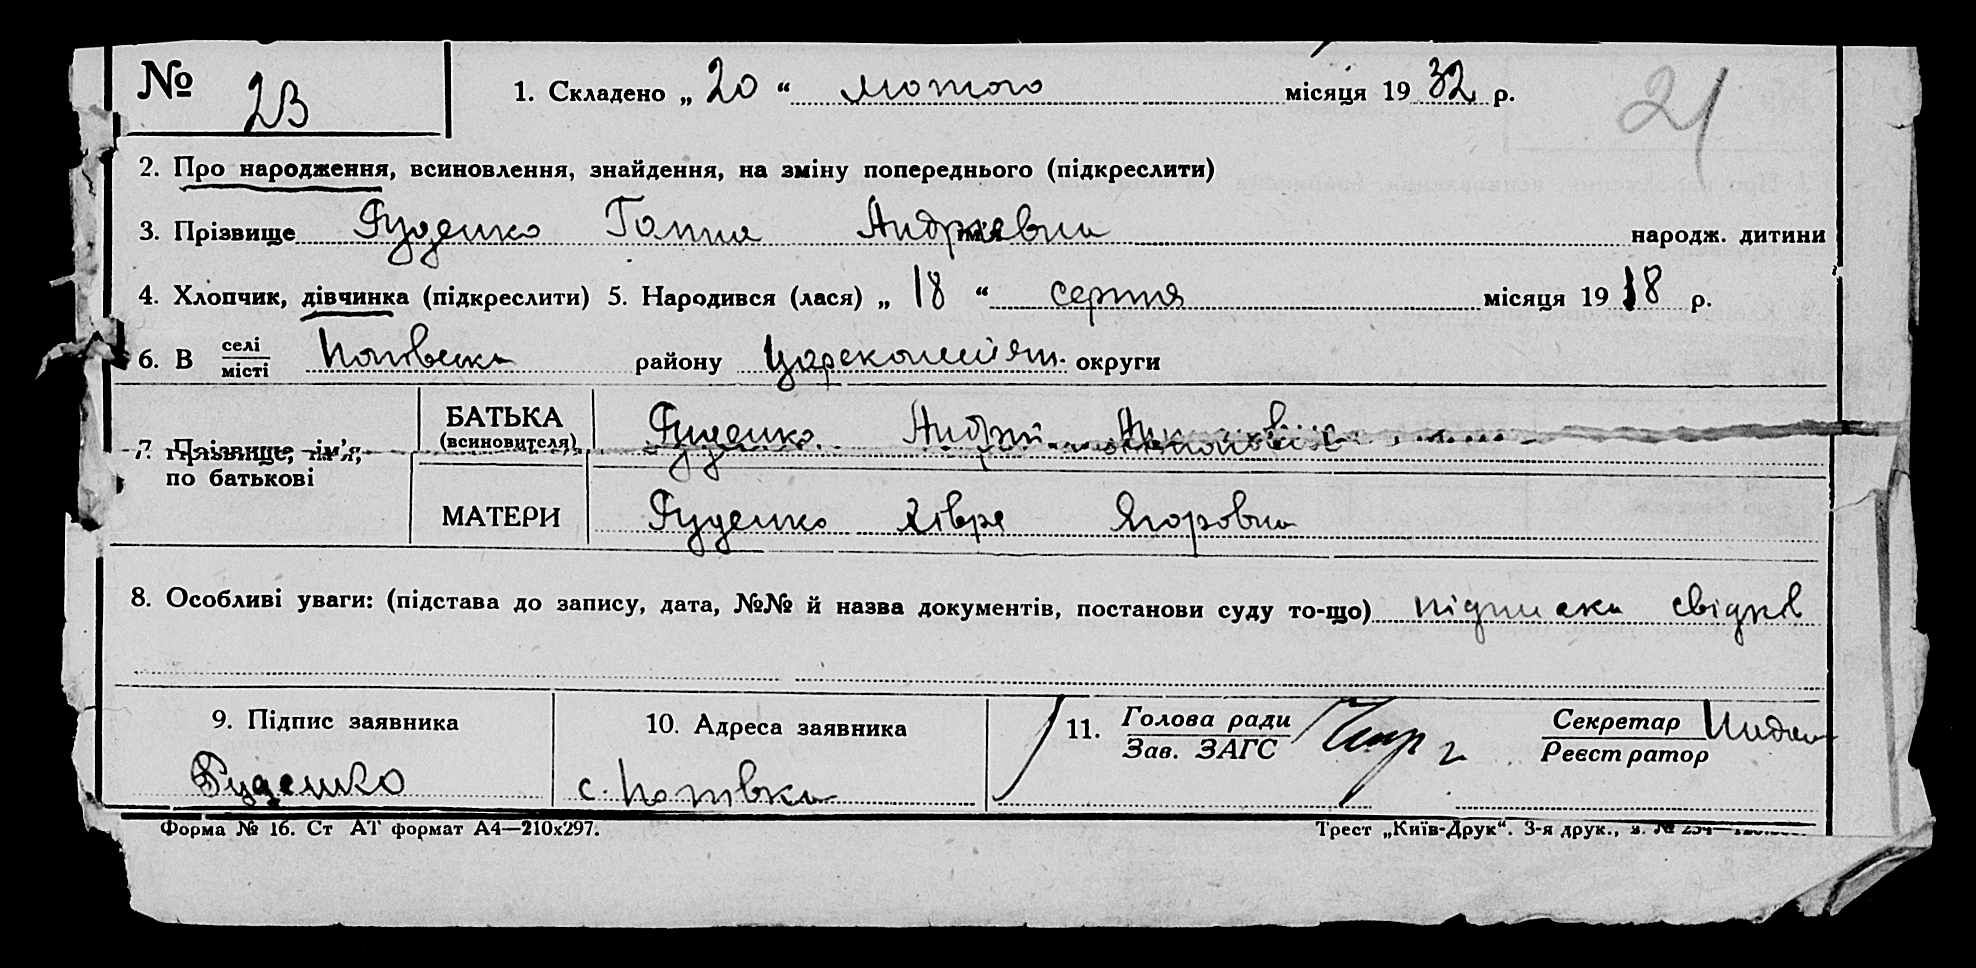 № 23
1. Складено „ 20 “ лютого місяця 19 32 р.
21
2. Про народження, всиновлення, знайдення, на зміну попереднього (підкреслити)
3. Прізвище Руденко Ганна Андріевна народж. дитини
4. Хлопчик, дівчинка (підкреслити) 5. Народився (лася) „ 18 “ серпня місяця 19 18 р.
6. В селі місті Попівка району округи
7. Прізвище, ім’я, по батькові
БАТЬКА (всиновителя) Руденко Андрій
МАТЕРИ Руденко Хівря Ягоровна
8. Особливі уваги: (підстава до запису, дата, №№ й назва документів, постанови суду то-що) підписка свідків
9. Підпис заявника
Руденко
10. Адреса заявника
с. Попівка
11. Голова ради Зав. ЗАГС
Секретар Реєстратор
Форма № 16. Ст АТ формат А4—210х297.
Трест „Київ-Друк“. 3-я друк., з. № 254